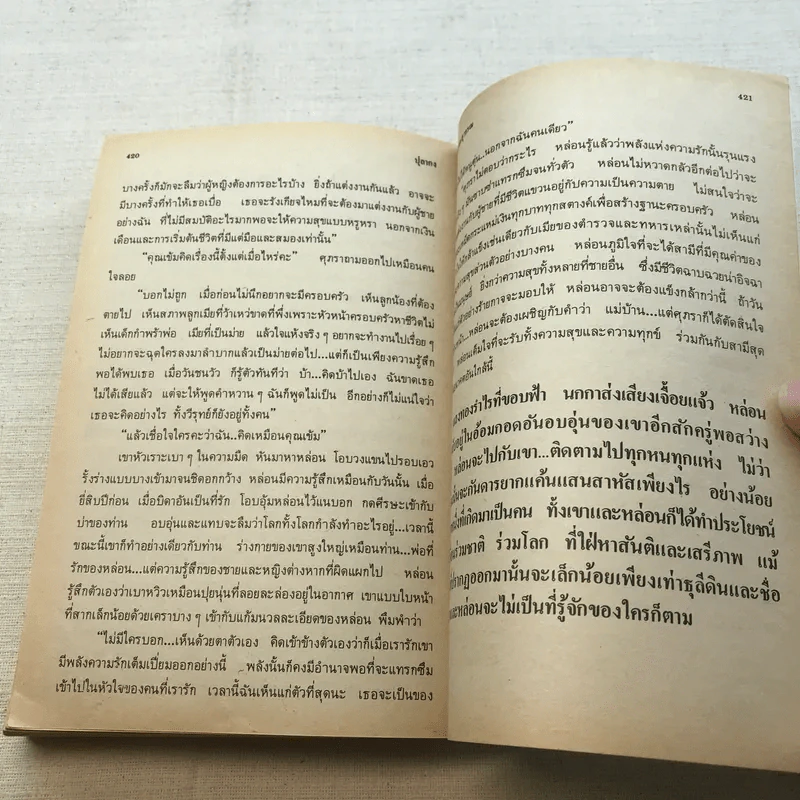 420
ปุลากง
บางครั้งก็มักจะลืมว่าผู้หญิงต้องการอะไรบ้าง ยิ่งถ้าแต่งงานกันแล้ว อาจจะ
มีบางครั้งที่ทำให้เธอเบื่อ เธอจะรังเกียจไหมที่จะต้องมาแต่งงานกับผู้ชาย
อย่างฉัน ที่ไม่มีสมบัติอะไรมากพอจะให้ความสุขแบบหรูหรา นอกจากเงิน
เดือนและการเริ่มต้นชีวิตที่มีแต่มือและสมองเท่านั้น”
“คุณเข้มคิดเรื่องนี้ตั้งแต่เมื่อไหร่คะ” ศุภราถามออกไปเหมือนคน
ใจลอย
“บอกไม่ถูก เมื่อก่อนไม่นึกอยากจะมีครอบครัว เห็นลูกน้องที่ต้อง
ตายไป เห็นสภาพลูกเมียที่ว้าเหว่ขาดที่พึ่งเพราะหัวหน้าครอบครัวหาชีวิตไม่
เห็นเด็กกำพร้าพ่อ เมียที่เป็นม่าย แล้วใจแห้งจริงๆ อยากจะทำงานไปเรื่อยๆ
ไม่อยากจะฉุดใครลงมาลำบากแล้วเป็นม่ายต่อไป...แต่ก็เป็นเพียงความรู้สึก
พอได้พบเธอ เมื่อวันชนวัว ก็รู้ตัวทันทีว่า บ้า...คิดบ้าไปเอง ฉันขาดเธอ
ไม่ได้เสียแล้ว แต่จะให้พูดคำหวานๆ ฉันก็พูดไม่เป็น อีกอย่างก็ไม่แน่ใจว่า
เธอจะคิดอย่างไร ทั้งวีรุทย์ก็ยังอยู่ทั้งคน”
“แล้วเชื่อใจใครคะว่าฉัน..คิดเหมือนคุณเข้ม”
เขาหัวเราะเบาๆ ในความมืด หันมาหาหล่อน โอบวงแขนไปรอบเอว
รั้งร่างแบบบางเข้ามาจนชิดอกกว้าง หล่อนมีความรู้สึกเหมือนกับวันนั้น เมื่อ
ยี่สิบปีก่อน เมื่อบิดาอันเป็นที่รัก โอบอุ้มหล่อนไว้แนบอก กดศีรษะเข้ากับ
บ่าของท่าน อบอุ่นและแทบจะลืมว่าโลกทั้งโลกกำลังทำอะไรอยู่...เวลานี้
ขณะนี้เขาก็ทำอย่างเดียวกับท่าน ร่างกายของเขาสูงใหญ่เหมือนท่าน...พ่อที่
รักของหล่อน...แต่ความรู้สึกของชายและหญิงต่างหากที่ผิดแผกไป หล่อน
รู้สึกตัวเองว่าเบาหวิวเหมือนปุยนุ่นที่ลอยละล่องอยู่ในอากาศ เขาแนบใบหน้า
ที่สากเล็กน้อยด้วยเคราบางๆ เข้ากับแก้มนวลละเอียดของหล่อน พึมพำว่า
“ไม่มีใครบอก...เห็นด้วยตาตัวเอง คิดเข้าข้างตัวเองว่าก็เมื่อเรารักเขา
มีพลังความรักเต็มเปี่ยมออกอย่างนี้ พลังนั้นก็คงมีอำนาจพอที่จะแทรกซึม
เข้าไปในหัวใจของคนที่เรารัก เวลานี้ฉันเห็นแก่ตัวที่สุดนะ เธอจะเป็นของ
421
นอกจากฉันคนเดียว”
หล่อนรู้แล้วว่าพลังแห่งความรักนั้นรุนแรง
หล่อนไม่หวาดกลัวอีกต่อไปว่าจะ
กับผู้ชายที่มีชีวิตแขวนอยู่กับความเป็นความตาย ไม่สนใจว่าจะ
เงินทุกบาททุกสตางค์เพื่อสร้างฐานะครอบครัว หล่อน
เช่นเดียวกับเมียของตำรวจและทหารเหล่านั้นไม่เห็นแก่
ส่วนตัวอย่างบางคน หล่อนภูมิใจที่จะได้สามีที่มีคุณค่าของ
ยิ่งกว่าความสุขทั้งหลายที่ชายอื่น ซึ่งมีชีวิตฉาบฉวยน่าอิจฉา
อาจจะมอบให้ หล่อนอาจจะต้องแข็งกล้ากว่านี้ ถ้าวัน
หล่อนจะต้องเผชิญกับคำว่า แม่บ้าน...แต่ศุภราก็ได้ตัดสินใจ
หล่อนเต็มใจที่จะรับทั้งความสุขและความทุกข์ ร่วมกันกับสามีสุด
อันใกล้นี้
ทองรำไรที่ขอบฟ้า นกกาส่งเสียงเจื้อยแจ้ว หล่อน
อยู่ในอ้อมกอดอันอบอุ่นของเขาอีกสักครู่พอสว่าง
หล่อนจะไปกับเขา...ติดตามไปทุกหนทุกแห่ง ไม่ว่า
จะกันดารยากแค้นแสนสาหัสเพียงไร อย่างน้อย
ที่เกิดมาเป็นคน ทั้งเขาและหล่อนก็ได้ทำประโยชน์
ร่วมชาติ ร่วมโลก ที่ใฝ่หาสันติและเสรีภาพ แม้
ปรากฏออกมานั้นจะเล็กน้อยเพียงเท่าธุลีดินและชื่อ
และหล่อนจะไม่เป็นที่รู้จักของใครก็ตาม